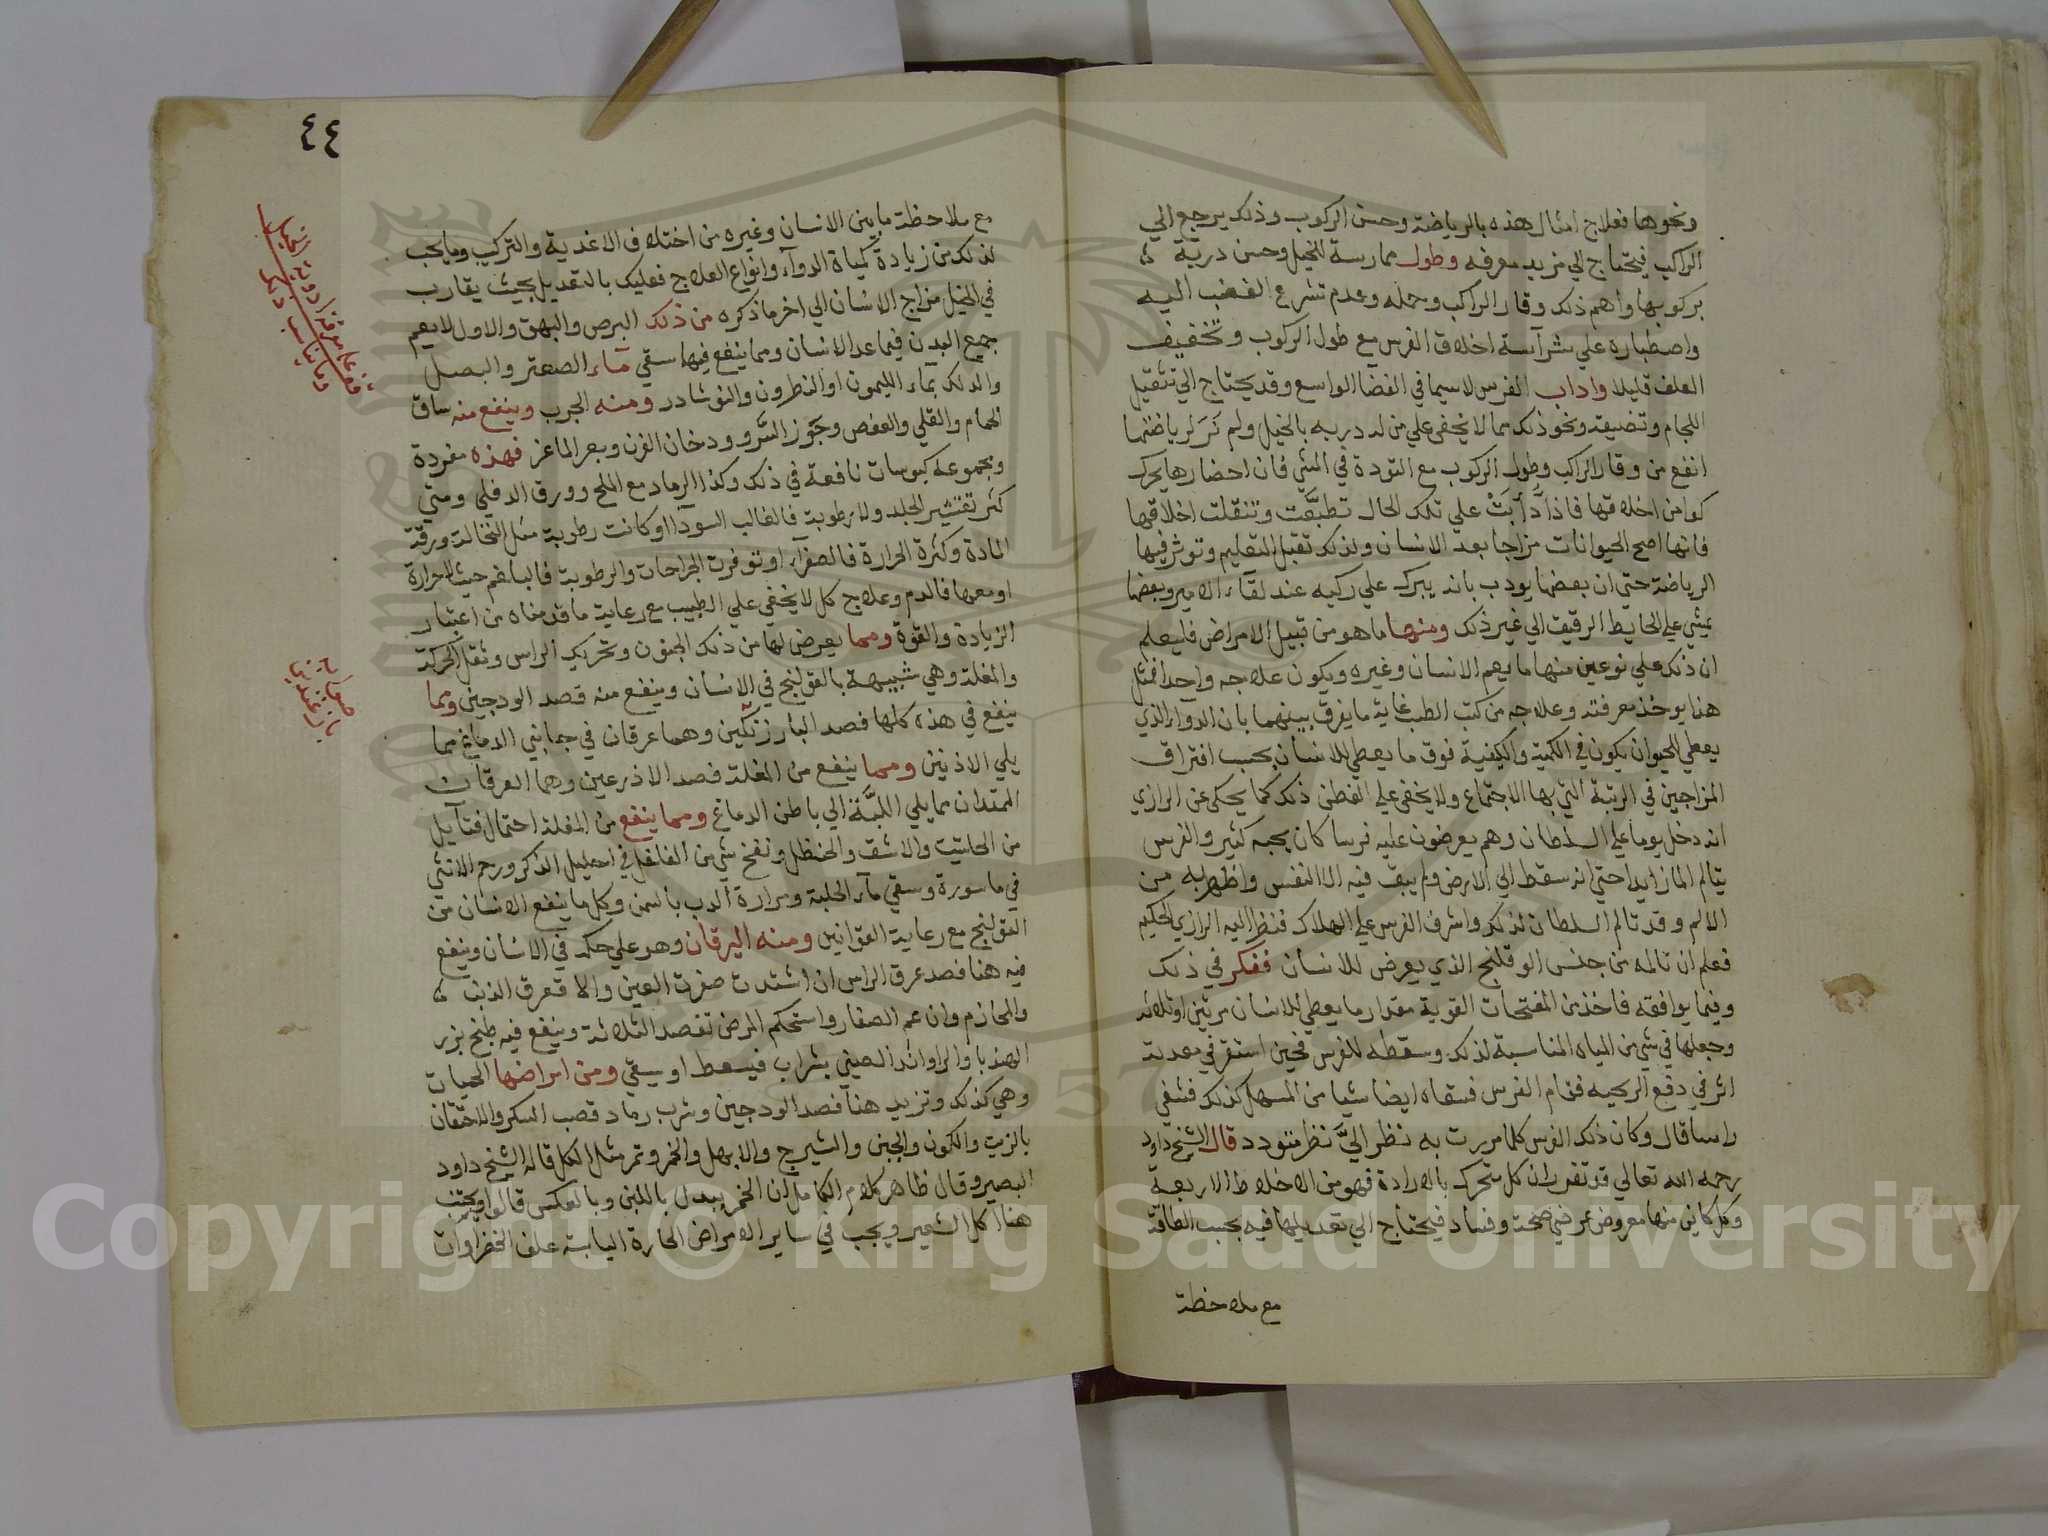 ونحوها فعلاج امثال هذه بالرياضة وحسن الركوب وذلك يرجع الي
الراكب فيحتاج الي مزيد معرفه وطول ممارسة للخيل وحسن دربة
بركوبها واهم ذلك وقار الراكب وحمله وعدم تشرع الغضب اليه
واصطباره علي شراسة اخلاق الفرس مع طول الركوب وتخفيف
العلف قليلا واداب الفرس لاسيما في الفضا الواسع وقد يحتاج الي تثقيل
اللجام وتضيقه ونحو ذلك مما لا يخفي علي من له دربه بالخيل ولم نر لرياضتها
انفع من وقار الراكب وطول الركوب مع التودة في المشي فان احضارها يحرك
كوامن اخلاقها فاذا دأبت علي تلك الحال تطبعت وتنقلت اخلاقها
فانها اصح الحيوانات مزاجا بعد الانسان ولذلك تقبل التعليم وتوثر فيها
الرياضة حتي ان بعضها يودب بانه يبرك علي ركبه عند لقاء الامير وبعضها
يمشي علي الحايط الرقيق الي غير ذلك ومنها ما هو من قبيل الامراض فليعلم
ان ذلك علي نوعين منها ما يعم الانسان وغيره ويكون علاجه واحدا فمثل
هذا يوخذ معرفته وعلاجه من كتب الطب غاية ما يفرق بينهما بان الدواء الذي
يعطي الحيوان يكون في الكمية والكيفية فوق ما يعطي للانسان بحسب افتراق
المزاجين في الرتبة التي بها الاجتماع ولا يخفي علي الفطن ذلك كما يحكي عن الرازي
انه دخل يوما علي السلطان وهم يعرضون عليه فرسا كان يحبه كثير والفرس
يتالم الما زايدا حتي انه سقط الي الارض ولم يبق فيه الا النفس واظهر به من
الالم وقد تالم السلطان لذلك واشرف الفرس علي الهلاك فنظر اليه الرازي الحكيم
فعلم ان تالمه من جنس القولنج الذي يعرض للانسان ففكر في ذلك
وفيما يوافقه فاخذ من المفتحات القوية مقدار ما يعطي للانسان مرتين او ثلاثه
وجعلها في شي من المياه المناسبة لذلك وسقطه للفرس فحين استقر في معدته
اثر في دفع الريحيه فقام الفرس فسقاه ايضا شيا من المسهل كذلك فشفي
راسا قال وكان ذلك الفرس كلما مررت به نظر الي نظر متودد قال الشيخ داود
رحمه الله تعالي قد تقرر ان كل متحرك بالارادة فهو من الاخلاط الاربعة
وكل كاين منها معروض عرضي صحة وفساد فيحتاج الي تعديلها فيه بحسب الطاقة
مع ملاحظة
٤٤
مع ملاحظة ما بين الانسان وغيره من اختلاف الاغذية والتركيب وما يجب
لذلك من زيادة كمياة الدواء وانواع العلاج فعليك بالتعديل بحيث يقارب
في الخيل مزاج الانسان الي اخر ما ذكره من ذلك البرص والبهق والاول لا يعم
جميع البدن فيما عدا الانسان ومما ينفع فيها سقي ماء الصعتر والبصل
والدلك بماء الليمون او النطرون والنوشادر ومنه الجرب وينفع منه ساق
الحمام والقلي والعفص وجوز السرو ودخان الفرن وبعر الماعز فهذه مفردة
ومجموعه كبوسات نافعة في ذلك وكذا الرماد مع الملح وورق الدفلي ومتي
كثر تقشير الجلد ولا رطوبة فالغالب السودا او كانت رطوبة مثل النخالة ورقة
المادة وكثرة الحرارة فالصفراء او توفرت الجراحات والرطوبة فالبلغم حيث لا حرارة
او معها فالدم وعلاج كل لا يخفي علي الطبيب مع رعاية ما قدمناه من اعتبار
الزيادة والقوة ومما يعرض لها من ذلك الجنون وتحريك الراس وثقل الحركة
والمغلة وهي شبيهة بالقولنج في الانسان وينفع منه فصد الودجين ومما
ينفع في هذه كلها فصد البازرنكين وهما عرقان في جانبي الدماغ مما
يلي الاذنين ومما ينفع من المغلة فصد الاذرعين وهما العرقان
الممتدان مما يلي اللبة الي باطن الدماغ ومما ينفع من المغلة احتمال فتايل
من الحلتيت والاشق والحنظل ونفخ شي من الفلفل في احليل الذكر ورحم الانثي
في ماسورة وسقي ماء الحلبة ومرارة الدب بالسمن وكل ما ينفع الانسان من
القولنج مع رعاية القوانين ومنه اليرقان وهو علي حكمه في الانسان وينفع
فيه هنا فصد عرق الراس ان اشتدت صفرة العين والا فعرق الذنب
والمحازم وان عم الصفار واستحكم المرض تفصد الثلاثة وينفع فيه طبخ بزر
الهندبا والراوند الصيني بشراب فيسعط او يسقي ومن امراضها الحميات
وهي كذلك وتزيد هنا فصد الودجين وشرب رماد قصب السكر والاحتقان
بالزيت والكمون والجبن والشيرج والابهل والخمر وتمر مثل الكل قاله الشيخ داود
البصير وقال ظاهر كلام الكامل ان الخمر يبدل باللبن وبالعكس قالوا ويجتنب
هنا اكل الشعير ويجب في ساير الامراض الحارة اليابسة علف الخضراوات
Copyright © King Saud University